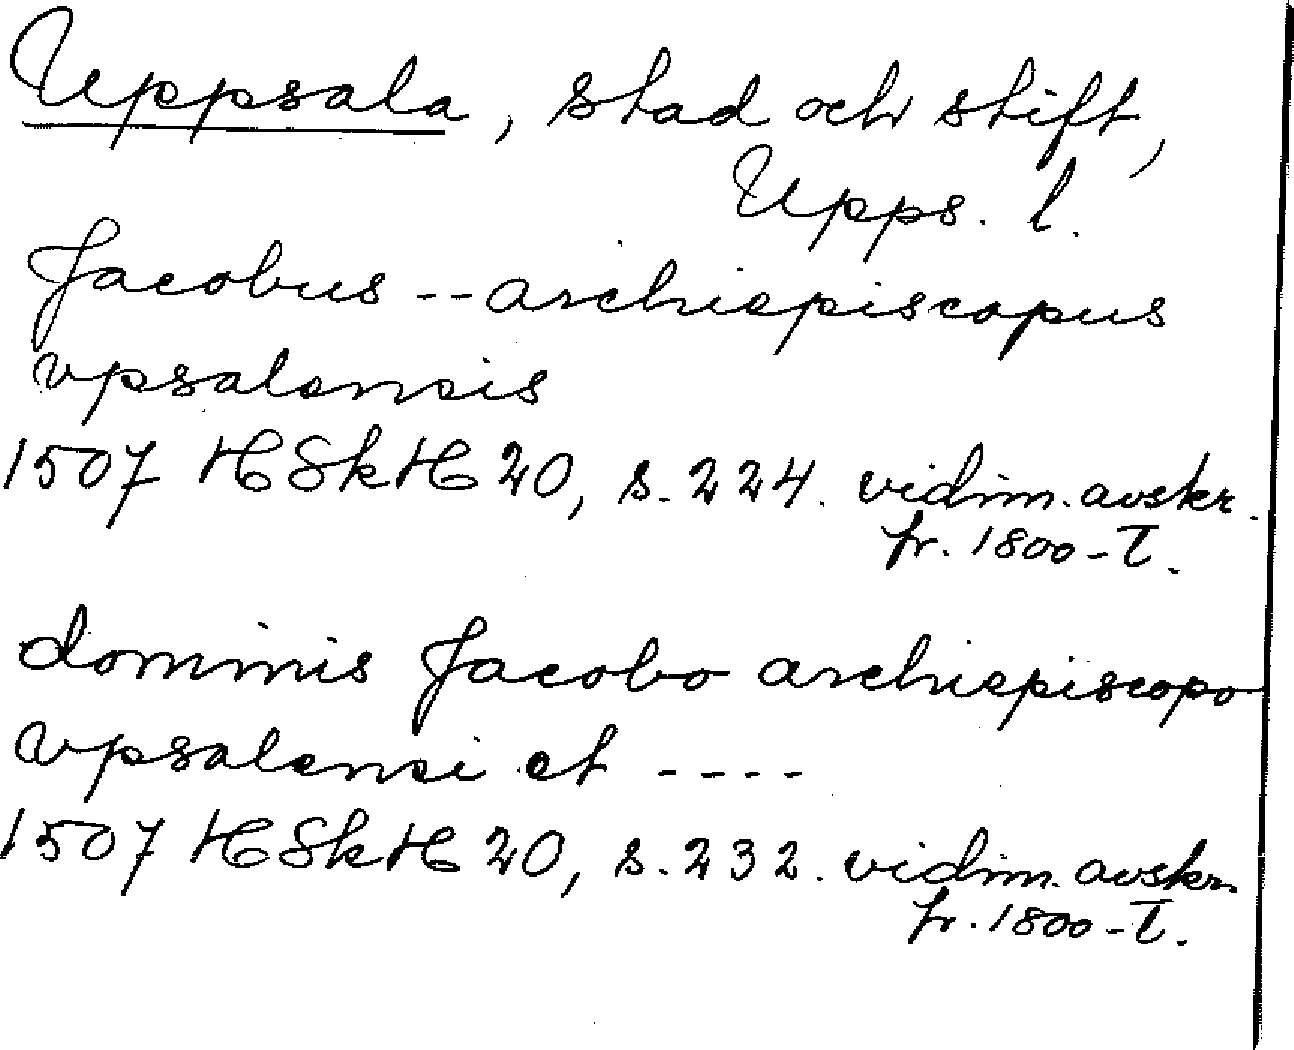 Uppsala, stad och stift,
Upps. l.
Jacobus -- archiepiscopus
vpsalensis
1507 HSkH 20, s. 224. vidim. avskr.
fr. 1800-T.
dominis Jacobo archiepiscopo
vpsalensi et ----
1507 HSkH 20, s. 232. vidim. avskr.
fr. 1800-T.